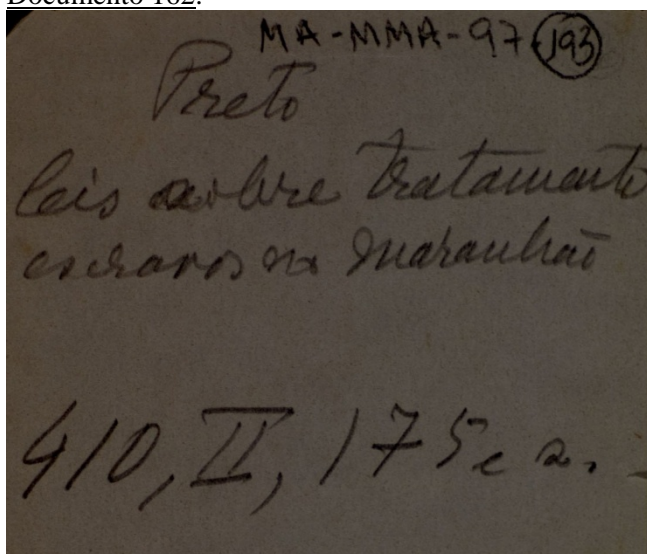 Documento 162:
MA-MMA-97 193
Preto
leis sobre tratamento
escravos no Maranhão
410, II, 175 e s.